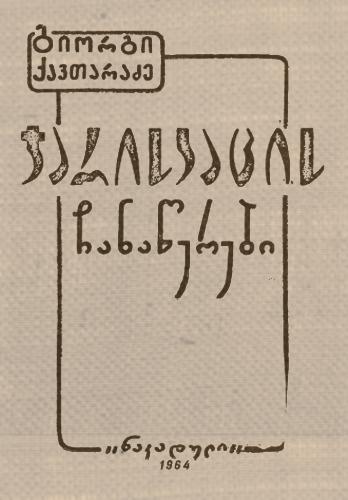 გიორგი
ქავთარაძე
ჯარისკაცის
ჩანაწერები
„ნაკადული“
1964